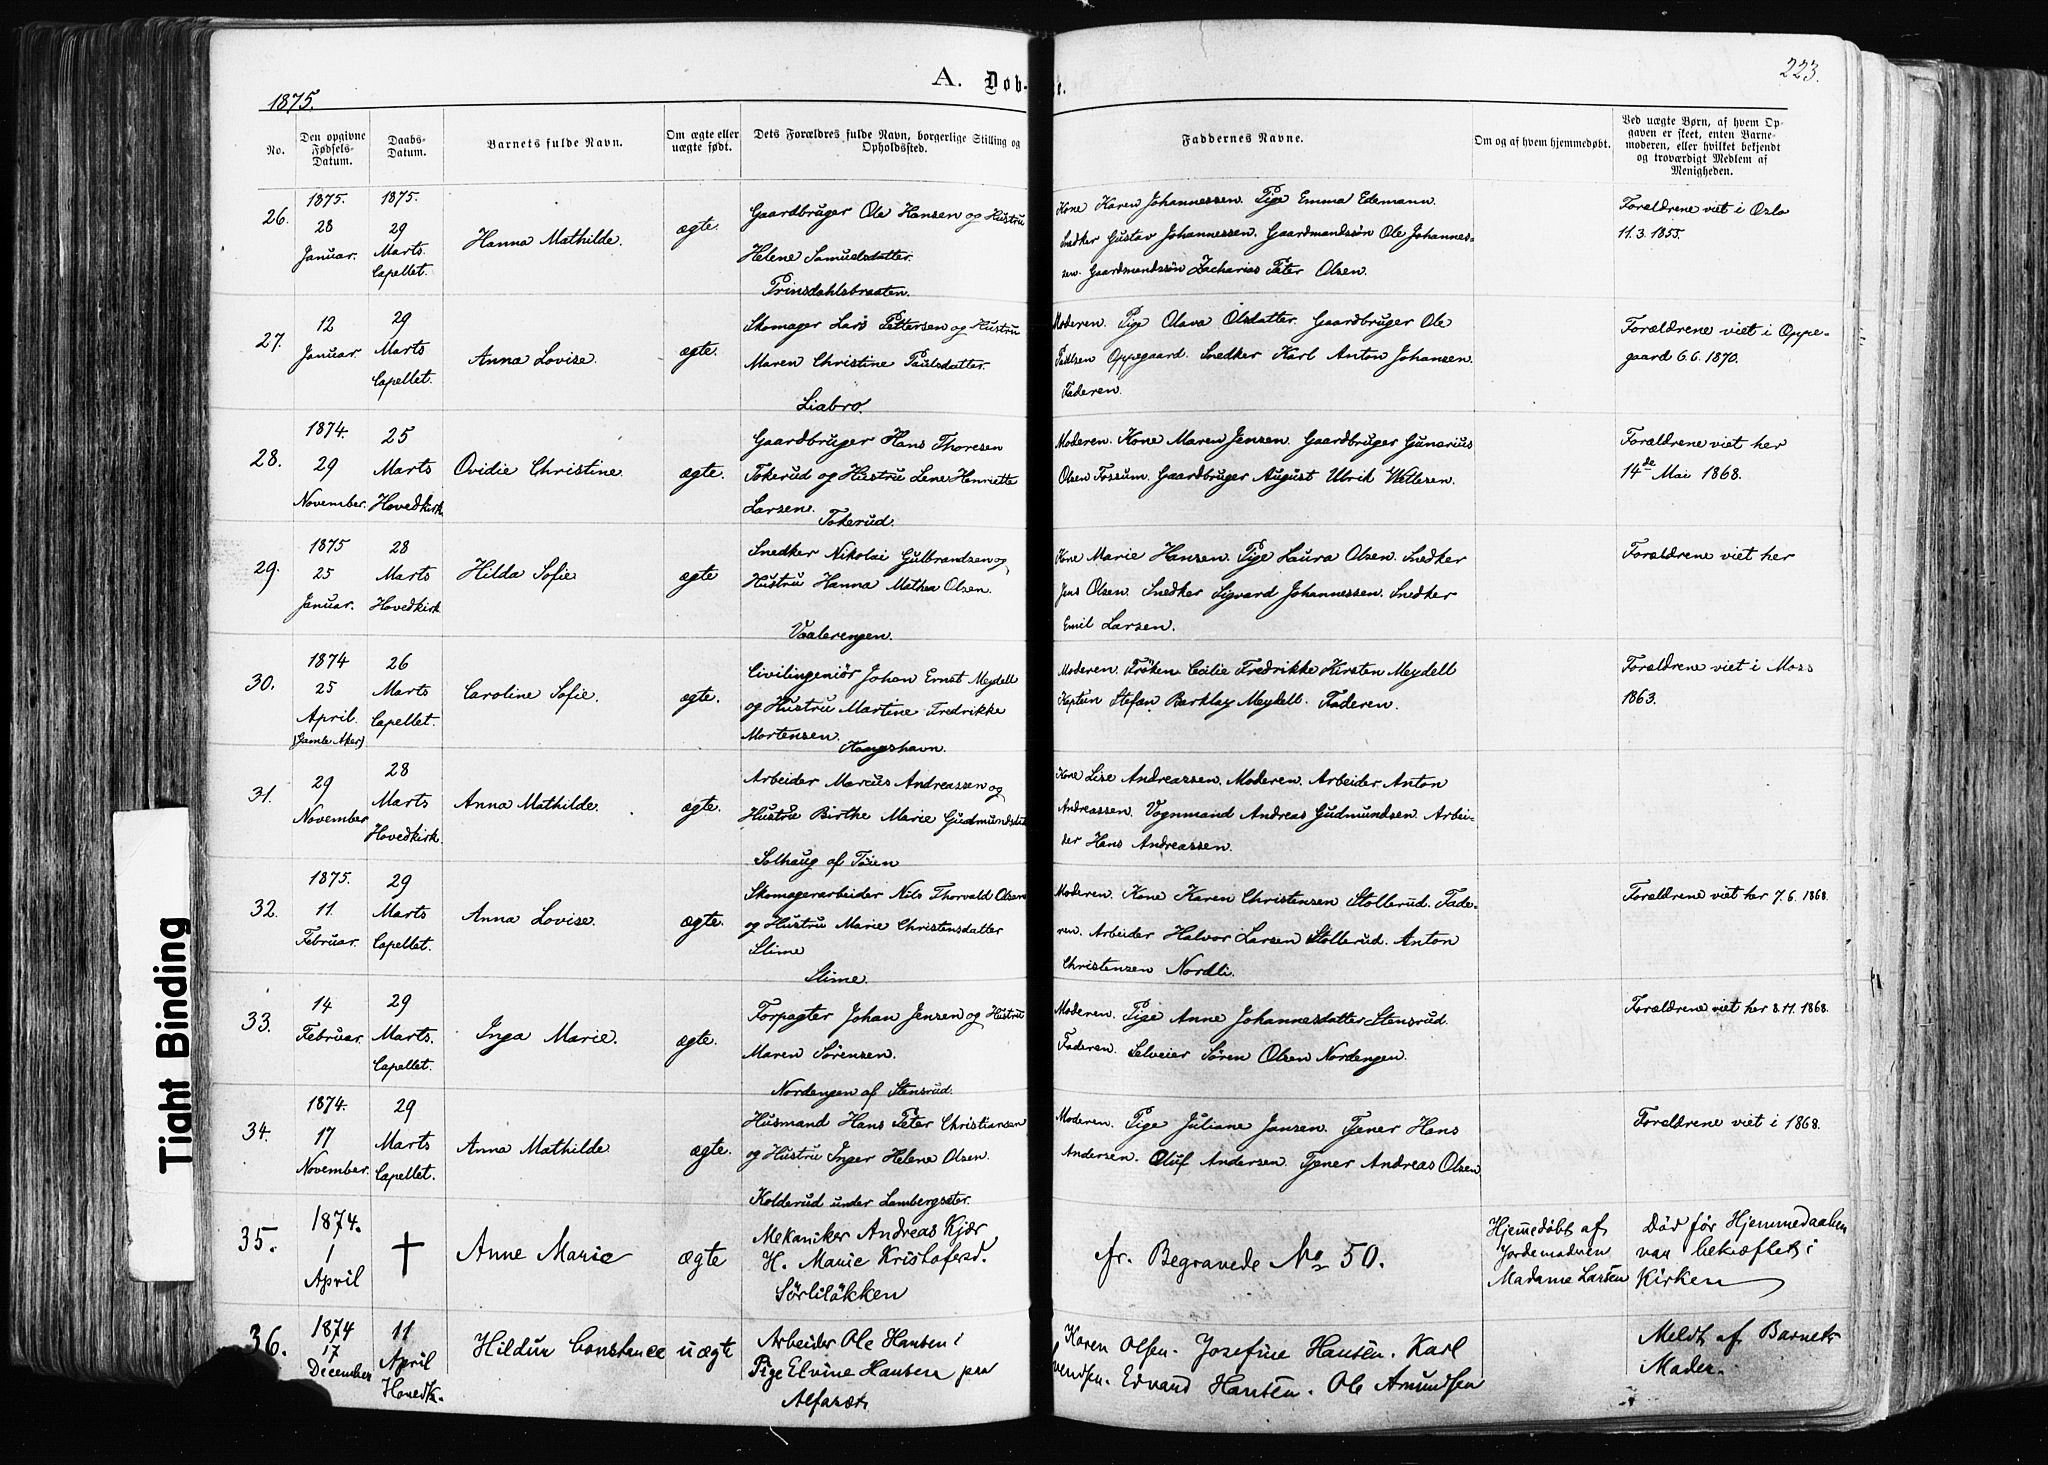 223.
A. Døb-te.
1875.
No.
Den opgivne Fødsels-Datum.
Daabs-Datum.
Barnets fulde Navn.
Om ægte eller uægte født.
Dets Forældres fulde Navn, borgerlige Stilling og Opholdssted.
Faddernes Navne.
Om og af hvem hjemmedøbt.
Ved uægte Børn, af hvem Opgaven er skeet, enten Barnemoderen, eller hvilket bekjendt og troværdigt Medlem af Menigheden.
26.
1875.
28
Januar.
1875.
29
Marts.
Capellet.
Hanna Mathilde.
ægte.
Gaardbruger Ole Hansen og Hustru
Helene Samuelsdatter.
Prinsdahlsbraaten.
Kone Karen Johannessen. Pige Emma Edemann.
Snedker Gustav Johannessen. Gaardmandssøn Ole Johannes-
sen. Gaardmandssøn Zacharias Peter Olsen.
Forældrene viet i Oslo
11.3.1855.
27.
12
Januar.
29
Marts
Capellet.
Anna Lovise.
ægte.
Skomager Lars Pettersen og Hustru
Maren Christine Paulsdatter.
Liabro.
Moderen. Pige Olava Olsdatter. Gaardbruger Ole
Paulsen Oppegaard. Snedker Karl Anton Johansen.
Faderen.
Forældrene viet i Oppe-
gaard 6.6.1870.
28.
1874.
29
November.
25
Marts
Hovedkirk.
Ovidie Christine.
ægte.
Gaardbruger Hans Thoresen
Tokerud og Hustru Lene Henriette
Larsen.
Tokerud.
Moderen. Kone Maren Jensen. Gaardbruger Gunarius
Olsen Fossum. Gaardbruger August Ulrik Wettesen.
Forældrene viet her
14de Mai 1868.
29.
1875
25
Januar.
28
Marts
Hovedkirk.
Hilda Sofie
ægte
Snedker Nikolai Gulbrandsen og
Hustru Hanna Mathea Olsen.
Vaalerengen.
Kone Marie Hansen. Pige Laura Olsen. Snedker
Jens Olsen. Snedker Sigvard Johannessen. Snedker
Emil Larsen.
Forældrene viet her
30.
1874
25
April.
(Gamle Aker)
26
Marts
Capellet.
Caroline Sofie.
ægte.
Civilingeniör Johan Ernst Meydell
og Hustru Martine Fredrikke
Mortensen.
Kongshavn.
Moderen. Frøken Cecilie Fredrikke Kirsten Meydell
Kaptein Stefan Barklay Meydell. Faderen.
Forældrene viet i Moss
1863.
31.
29
November
28
Marts
Hovedkirk.
Anna Mathilde.
ægte.
Arbeider Marcus Andreassen og
Hustru Birthe Marie Gudmundsdat
Solhaug af Tøien
Kone Lise Andreassen. Moderen. Arbeider Anton
Andreassen. Vognmand Andreas Gudmundsen. Arbei-
der Hans Andreassen.
32.
1875.
11.
Februar.
29
Marts
Capellet.
Anna Lovise.
ægte.
Skomagerarbeider Nils Thorvald Olsen
og Hustru Marie Christensdatter
Slime
Slime.
Moderen. Kone Karen Christensen Stollerud. Fade-
ren. Arbeider Halvor Larsen Stollerud. Anton
Christensen Nordli.
Forældrene viet her 7.6.1868.
33.
14
Februar.
29
Marts.
Capellet.
Inga Marie.
ægte.
Forpagter Johan Jensen og Hustru
Maren Sørensen.
Nordengen af Stensrud.
Moderen. Pige Anne Johannesdatter Stensrud.
Faderen. Selveier Søren Olsen Nordengen.
Forældrene viet her 8.11.1868.
34.
1874.
17
November.
29
Marts
Capellet.
Anna Mathilde
ægte.
Husmand Hans Peter Christiansen
og Hustru Inger Helene Olsen.
Kolderud under Lambergsæter.
Moderen. Pige Juliane Jansen. Tjener Hans
Andersen. Oluf Andersen. Tjener Andreas Olsen
Forældrene viet i 1868.
35.
1874.
1
April
†
Anne Marie
ægte
Mekaniker Andreas Kjær
H. Marie Kristofersd.
Sörliløkken
fr. Begravede No 50.
Hjemmedøbt af
Jordemoderen
Madame Larsen
Död før Hjemmedaaben
var bekræftet i
Kirken
36.
1874
17
December
11
April
Hovedk.
Hildur Constance
uægte
Arbeider Ole Hansen i
Pige Elvine Hansen paa
Alfaset
Karen Olsen. Josefine Hansen. Karl
Svendsen. Edvard Hansen. Ole Amundsen
Meldt af Barnets
Moder.
Tight Binding